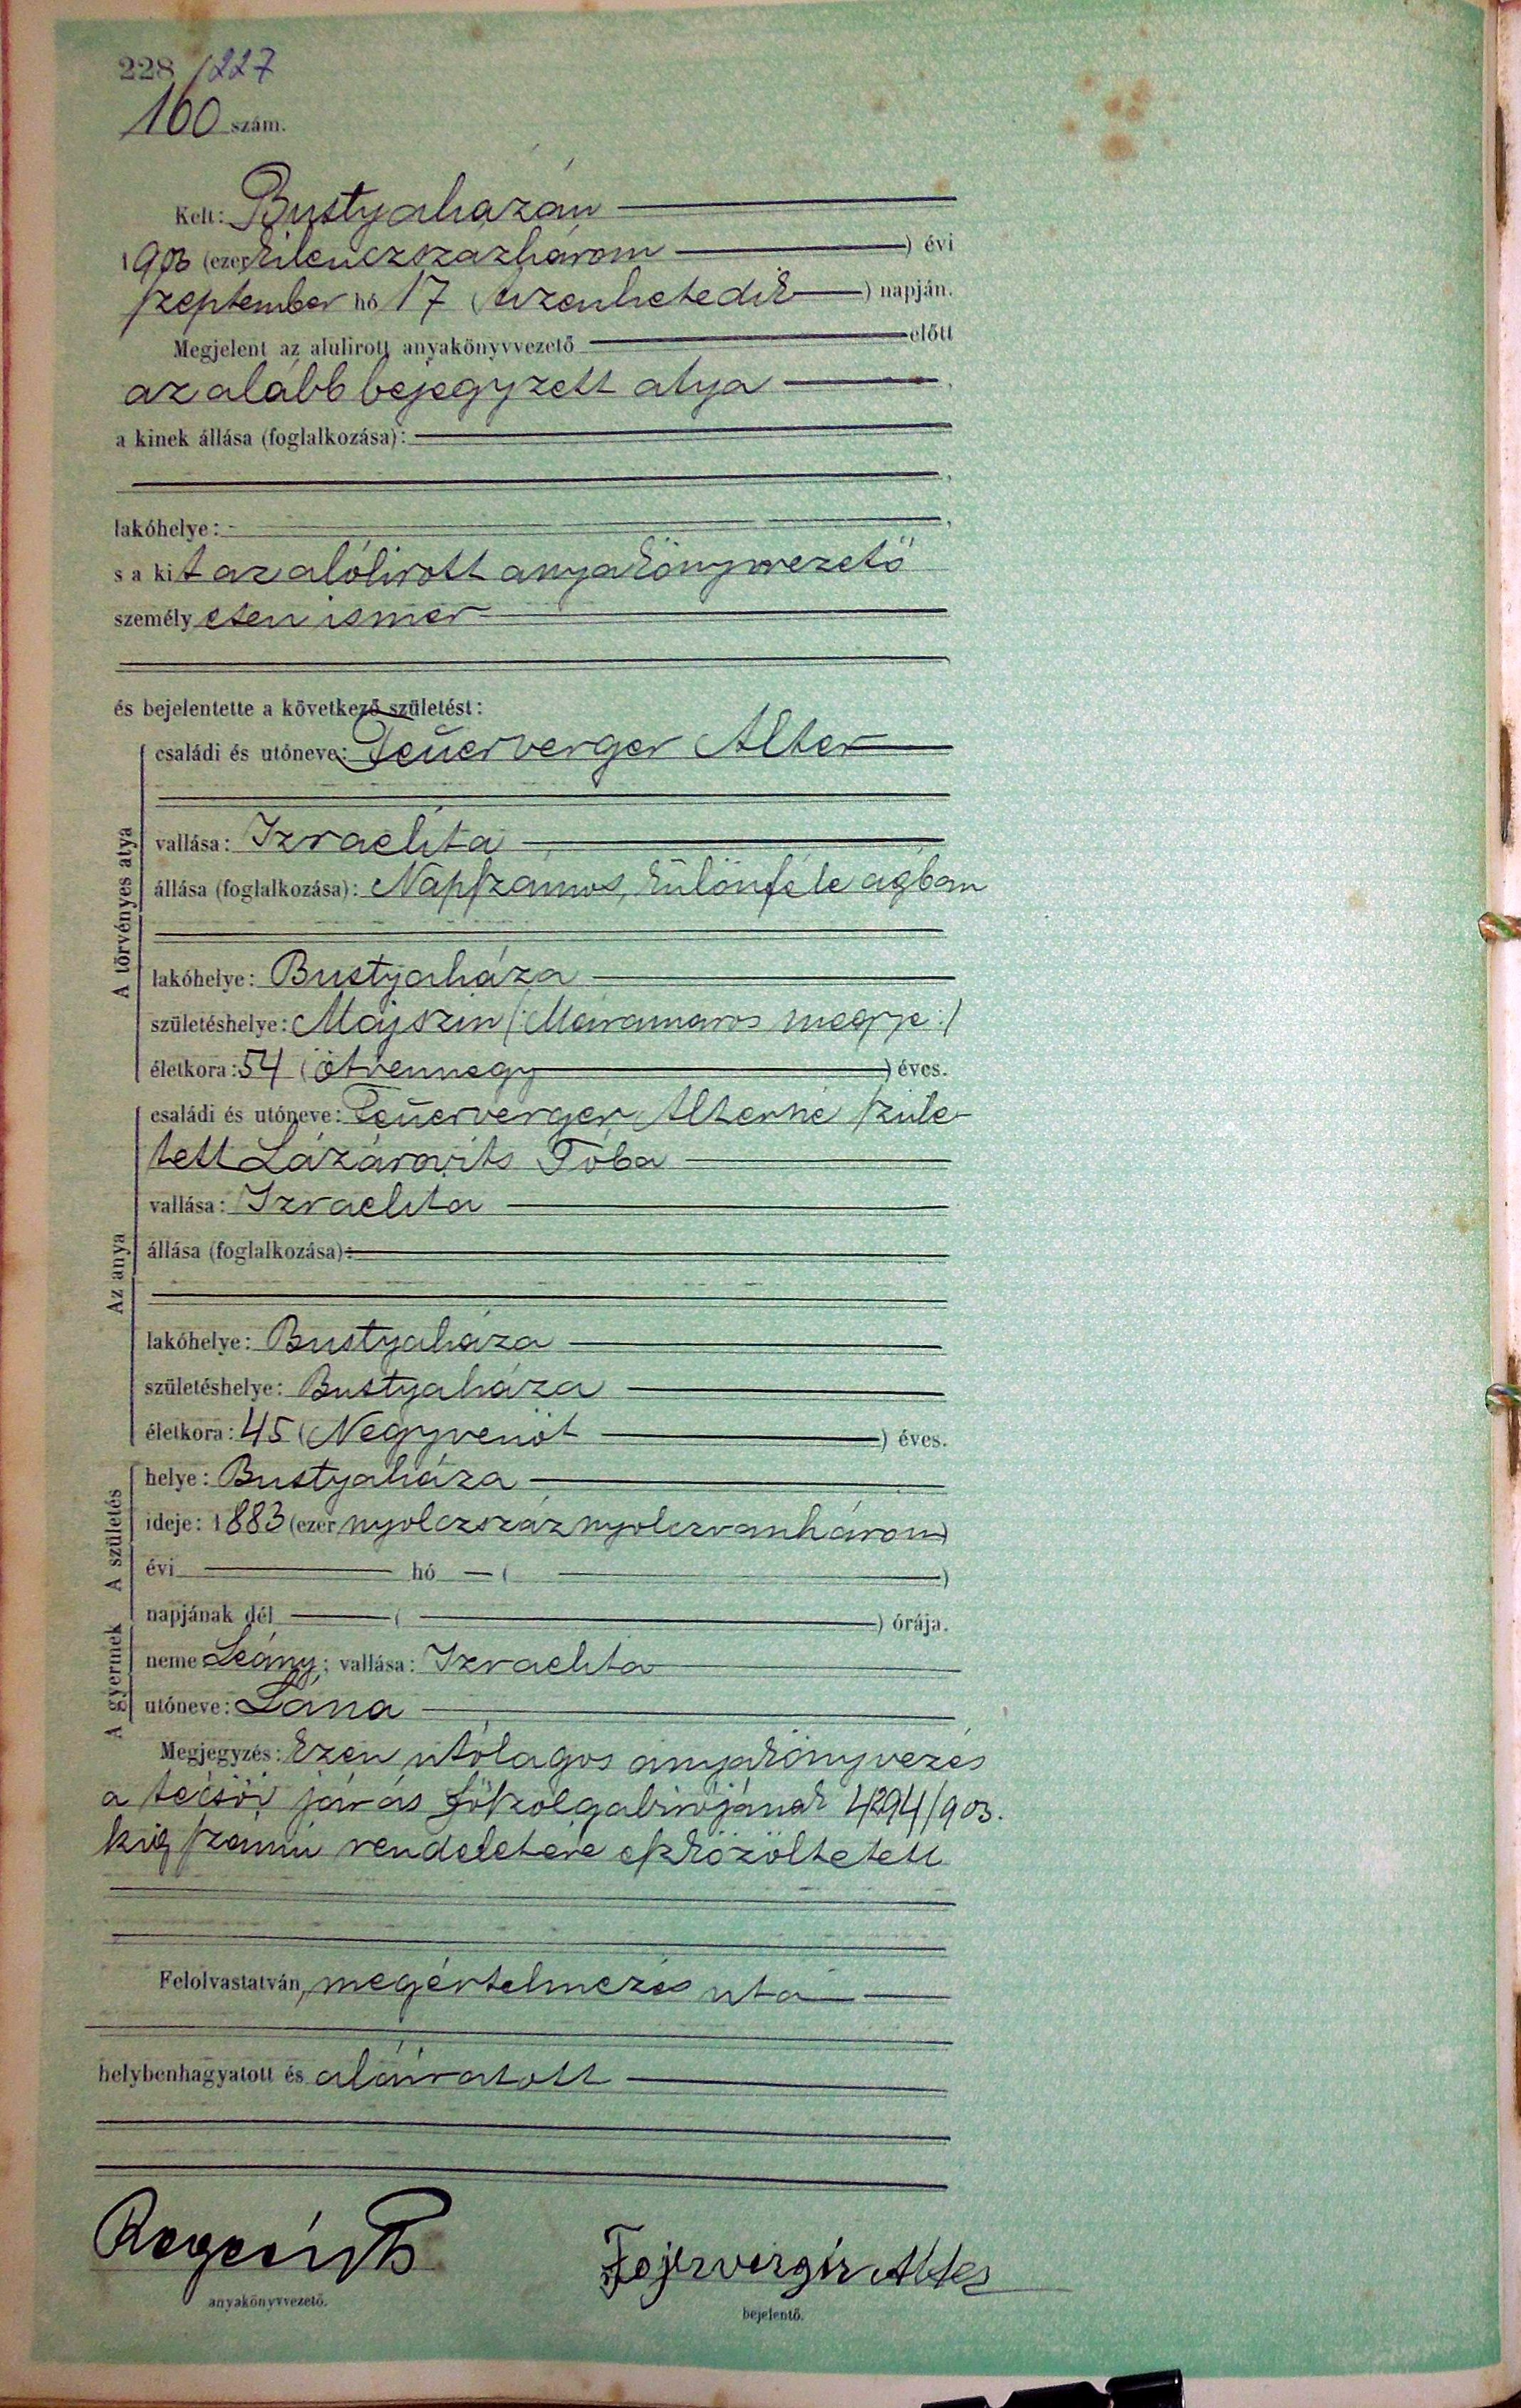 228 /227
160 szám.
Kelt: Bustyaházán
1903 (ezerkilenczszázhárom) évi
szeptember hó 17 (tizenhetedik) napján.
Megjelent az alulirott anyakönyvvezető előtt
az alább bejegyzett atya,
a kinek állása (foglalkozása):
lakóhelye:
s a kit az alólirott anyakönyvvezető
személyesen ismer
és bejelentette a következő születést:
A törvényes atya
családi és utóneve: Feuerverger Alter
vallása: Izraelita
állása (foglalkozása): Napszámos, különféle ágban
lakóhelye: Bustyaháza
születéshelye: Majszin (:Máramaros megye:)
életkora: 54 (ötvennégy) éves.
Az anya
családi és utóneve: Feuerverger Alterné szüle-
tett Lázárovits Tóba
vallása: Izraelita
állása (foglalkozása):
lakóhelye: Bustyaháza
születéshelye: Bustyaháza
életkora: 45 (Negyvenöt) éves.
A születés
helye: Bustyaháza
ideje: 1883 (ezernyolczszáznyolczvanhárom)
évi hó ( )
napjának dél ( ) órája.
A gyermek
neme Leány; vallása: Izraelita
utóneve: Lána
Megjegyzés: Ezen utólagos anyakönyvezés
a técsői járás főszolgabirójának 4294/903.
kig számú rendeletére eszközöltetett
Felolvastatván, megértelmezés utá
helybenhagyatott és aláiratott
anyakönyvvezető.
Fejerverger Alter
bejelentő.